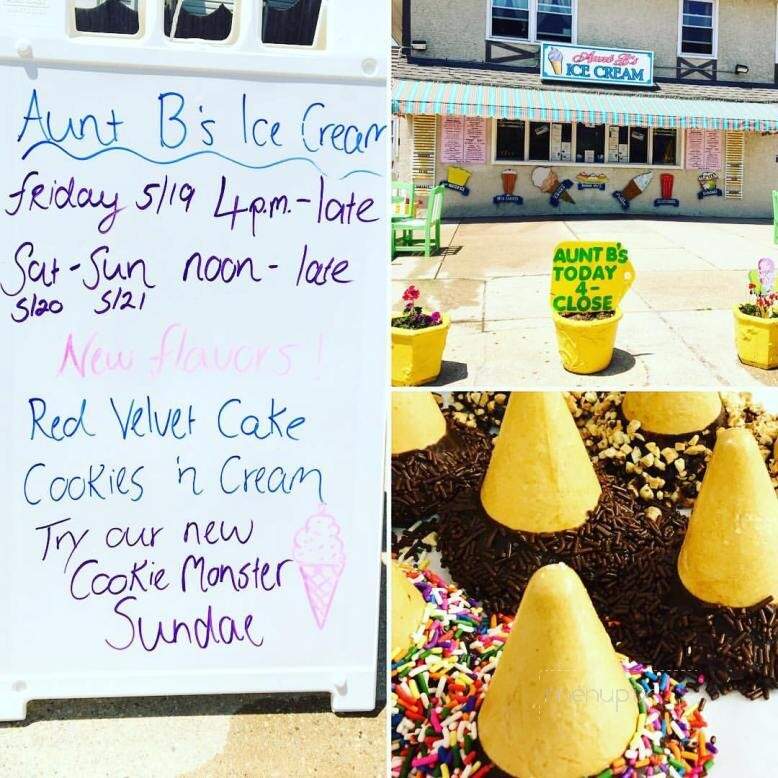 Aunt B's Ice Cream
friday 5/19 4p.m.-late
Sat-Sun noon-late
5/20 5/21
New flavors!
Red Velvet Cake
Cookies 'n Cream
Try our new
Cookie Monster
Sundae
Aunt B's
ICE CREAM
AUNT B'S
TODAY
4-
CLOSE
menup